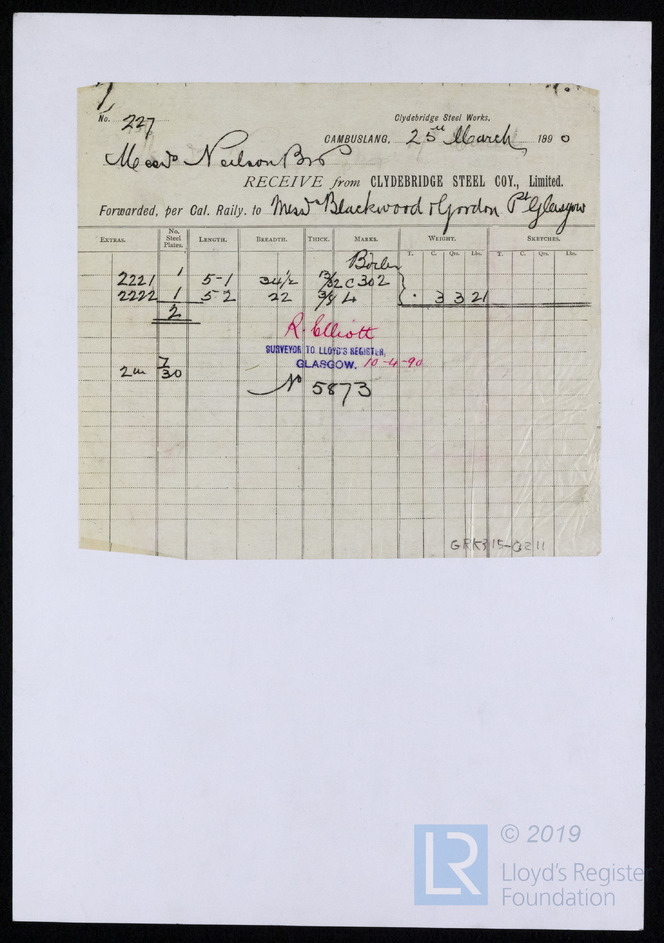 No. 227
Clydebridge Steel Works,
CAMBUSLANG, 25th March 1890
Messrs Neilson Bros
RECEIVE from CLYDEBRIDGE STEEL COY., Limited.
Forwarded, per Cal. Raily. to Messrs Blackwood & Gordon Pt Glasgow
EXTRAS. No. Steel Plates. LENGTH. BREADTH. THICK. MARKS. WEIGHT. SKETCHES.
T. C. Qrs. Lbs. T. C. Qrs. Lbs.
Boiler
2221 1 5-1 34½ 13/32 C 302
2222 1 5-2 22 3/8 L . 3 3 21
2
R. Elliott
SURVEYOR TO LLOYD'S REGISTER,
GLASGOW. 10-4-90
7/30
No 5873
GRK315-0211
© 2019
LR
Lloyd's Register
Foundation